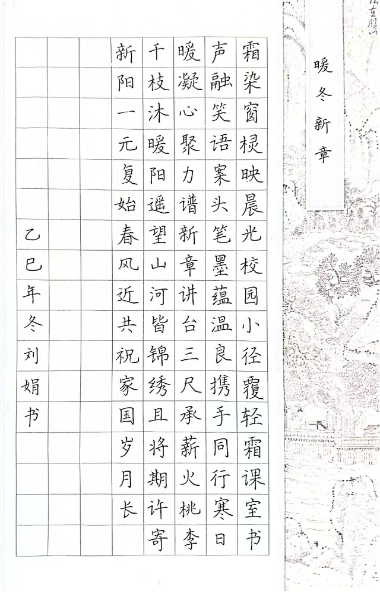 暖冬新章
霜染窗棂映晨光校园小径覆轻霜课室书
声融笑语案头笔墨蕴温良携手同行寒日
暖凝心聚力谱新章讲台三尺承薪火桃李
千枝沐暖阳遥望山河皆锦绣且将期许寄
新阳一元复始春风近共祝家国岁月长
乙巳年冬刘娟书